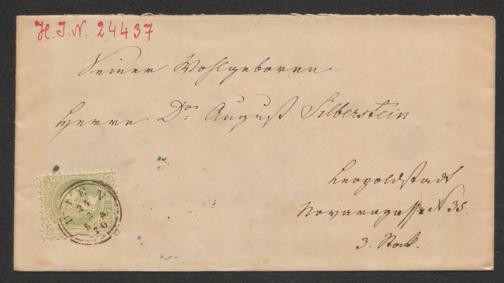 H.I.N. 24437
Seiner Wohlgeboren
Herrn Dor. August Silberstein
Leopoldstadt
Novaragasse N 35.
3. Stock.
WIEN